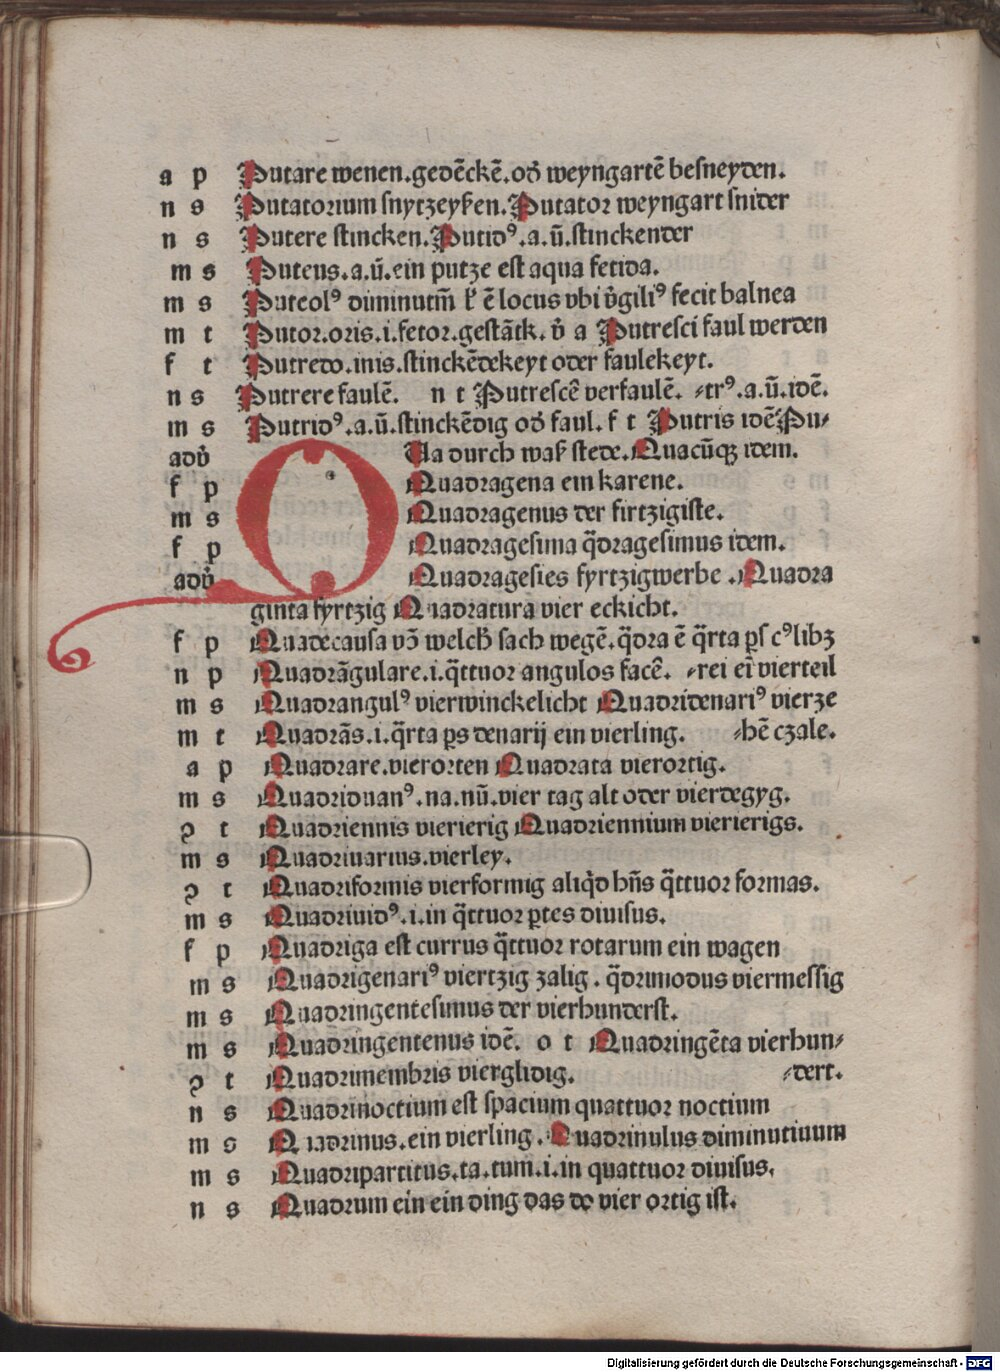 a p Putare wenen.gedēckē.od᷒ weyngartē besneyden.
n s Putatorium snytzeysen.Putator weyngart snider
n s Putere stincken.Putidꝰ.a.ū.stinckender
m s Puteus.a.ū.ein putze est aqua fetida.
m s Puteolꝰ diminutiū ē locus vbi v᷒giliꝰ fecit balnea
m t Putor.oris.i.fetor.gestāk. v᷒ a Putresci faul werden
f t Putredo.inis.stinckēdekeyt oder faulekeyt.
n s Putrere faulē. n t Putrescē verfaulē. ⸗trꝰ.a.ū.idē.
m s Putridꝰ.a.ū.stinckēdig od᷒ faul. f t Putris idē Pu⸗
adv᷒ QUa durch was stede.Quacūqꝫ idem.
f p Quadragena ein karene.
m s Quadragenus der firtzigiste.
f p Quadragesima q̄dragesimus idem.
adv᷒ Quadragesies fyrtzigwerbe .Quadra
ginta fyrtzig Quadratura vier eckicht.
f p Quadecausa vō welch᷒ sach wegē.q̄dra ē q̄rta ps cꝰlibꝫ
n p Quadrāgulare.i.q̄ttuor angulos facē. ⸗rei ei vierteil
m s Quadrangulꝰ vierwinckelicht Quadridenariꝰ vierze
m t Quadrās.i.q̄rta ꝑs denarij ein vierling. ⸗hē czale.
a p Quadrare.vierorten Quadrata vierortig.
m s Quadriduanꝰ.na.nū.vier tag alt oder vierdegyg.
ꝯ t Quadriennis vierierig Quadriennium vierierigs.
m s Quadriuarius.vierley.
ꝯ t Quadriformis vierformig aliq̄d hn̄s q̄ttuor formas.
m s Quadriuidꝰ.i.in q̄ttuor ꝑtes diuisus.
f p Quadriga est currus q̄ttuor rotarum ein wagen
m s Quadrigenariꝰ viertzig zalig. q̄drimodus viermessig
m s Quadringentesimus der vierhunderst.
m s Quadringentenus idē. o t Quadringēta vierhun⸗
ꝯ t Quadrimembris vierglidig. ⸗dert.
n s Quadrinoctium est spacium quattuor noctium
m s Quadrinus.ein vierling.Quadrinulus diminutiuum
m s Quadripartitus.ta.tum.i.in quattuor diuisus.
n s Quadrum ein ein ding das do vier ortig ist.
Digitalisierung gefördert durch die Deutsche Forschungsgemeinschaft - DFG